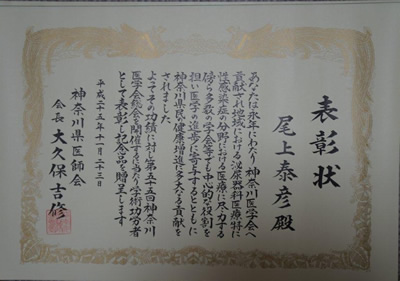 表彰状
尾上泰彦殿
あなたは永年にわたり神奈川医学会へ
貢献され地域における泌尿器科医療特に
性感染症の分野における医療に尽力する
傍ら多数の学会等でも中心的な役割を
担い医学の進歩に寄与するとともに
神奈川県民の健康増進に多大なる貢献を
されました
よってその功績に対し第五十五回神奈川
医学会総会を開催するにあたり学術功労者
として表彰し記念品を贈呈します
平成二十五年十一月二十三日
神奈川県医師会
会長 大久保吉修